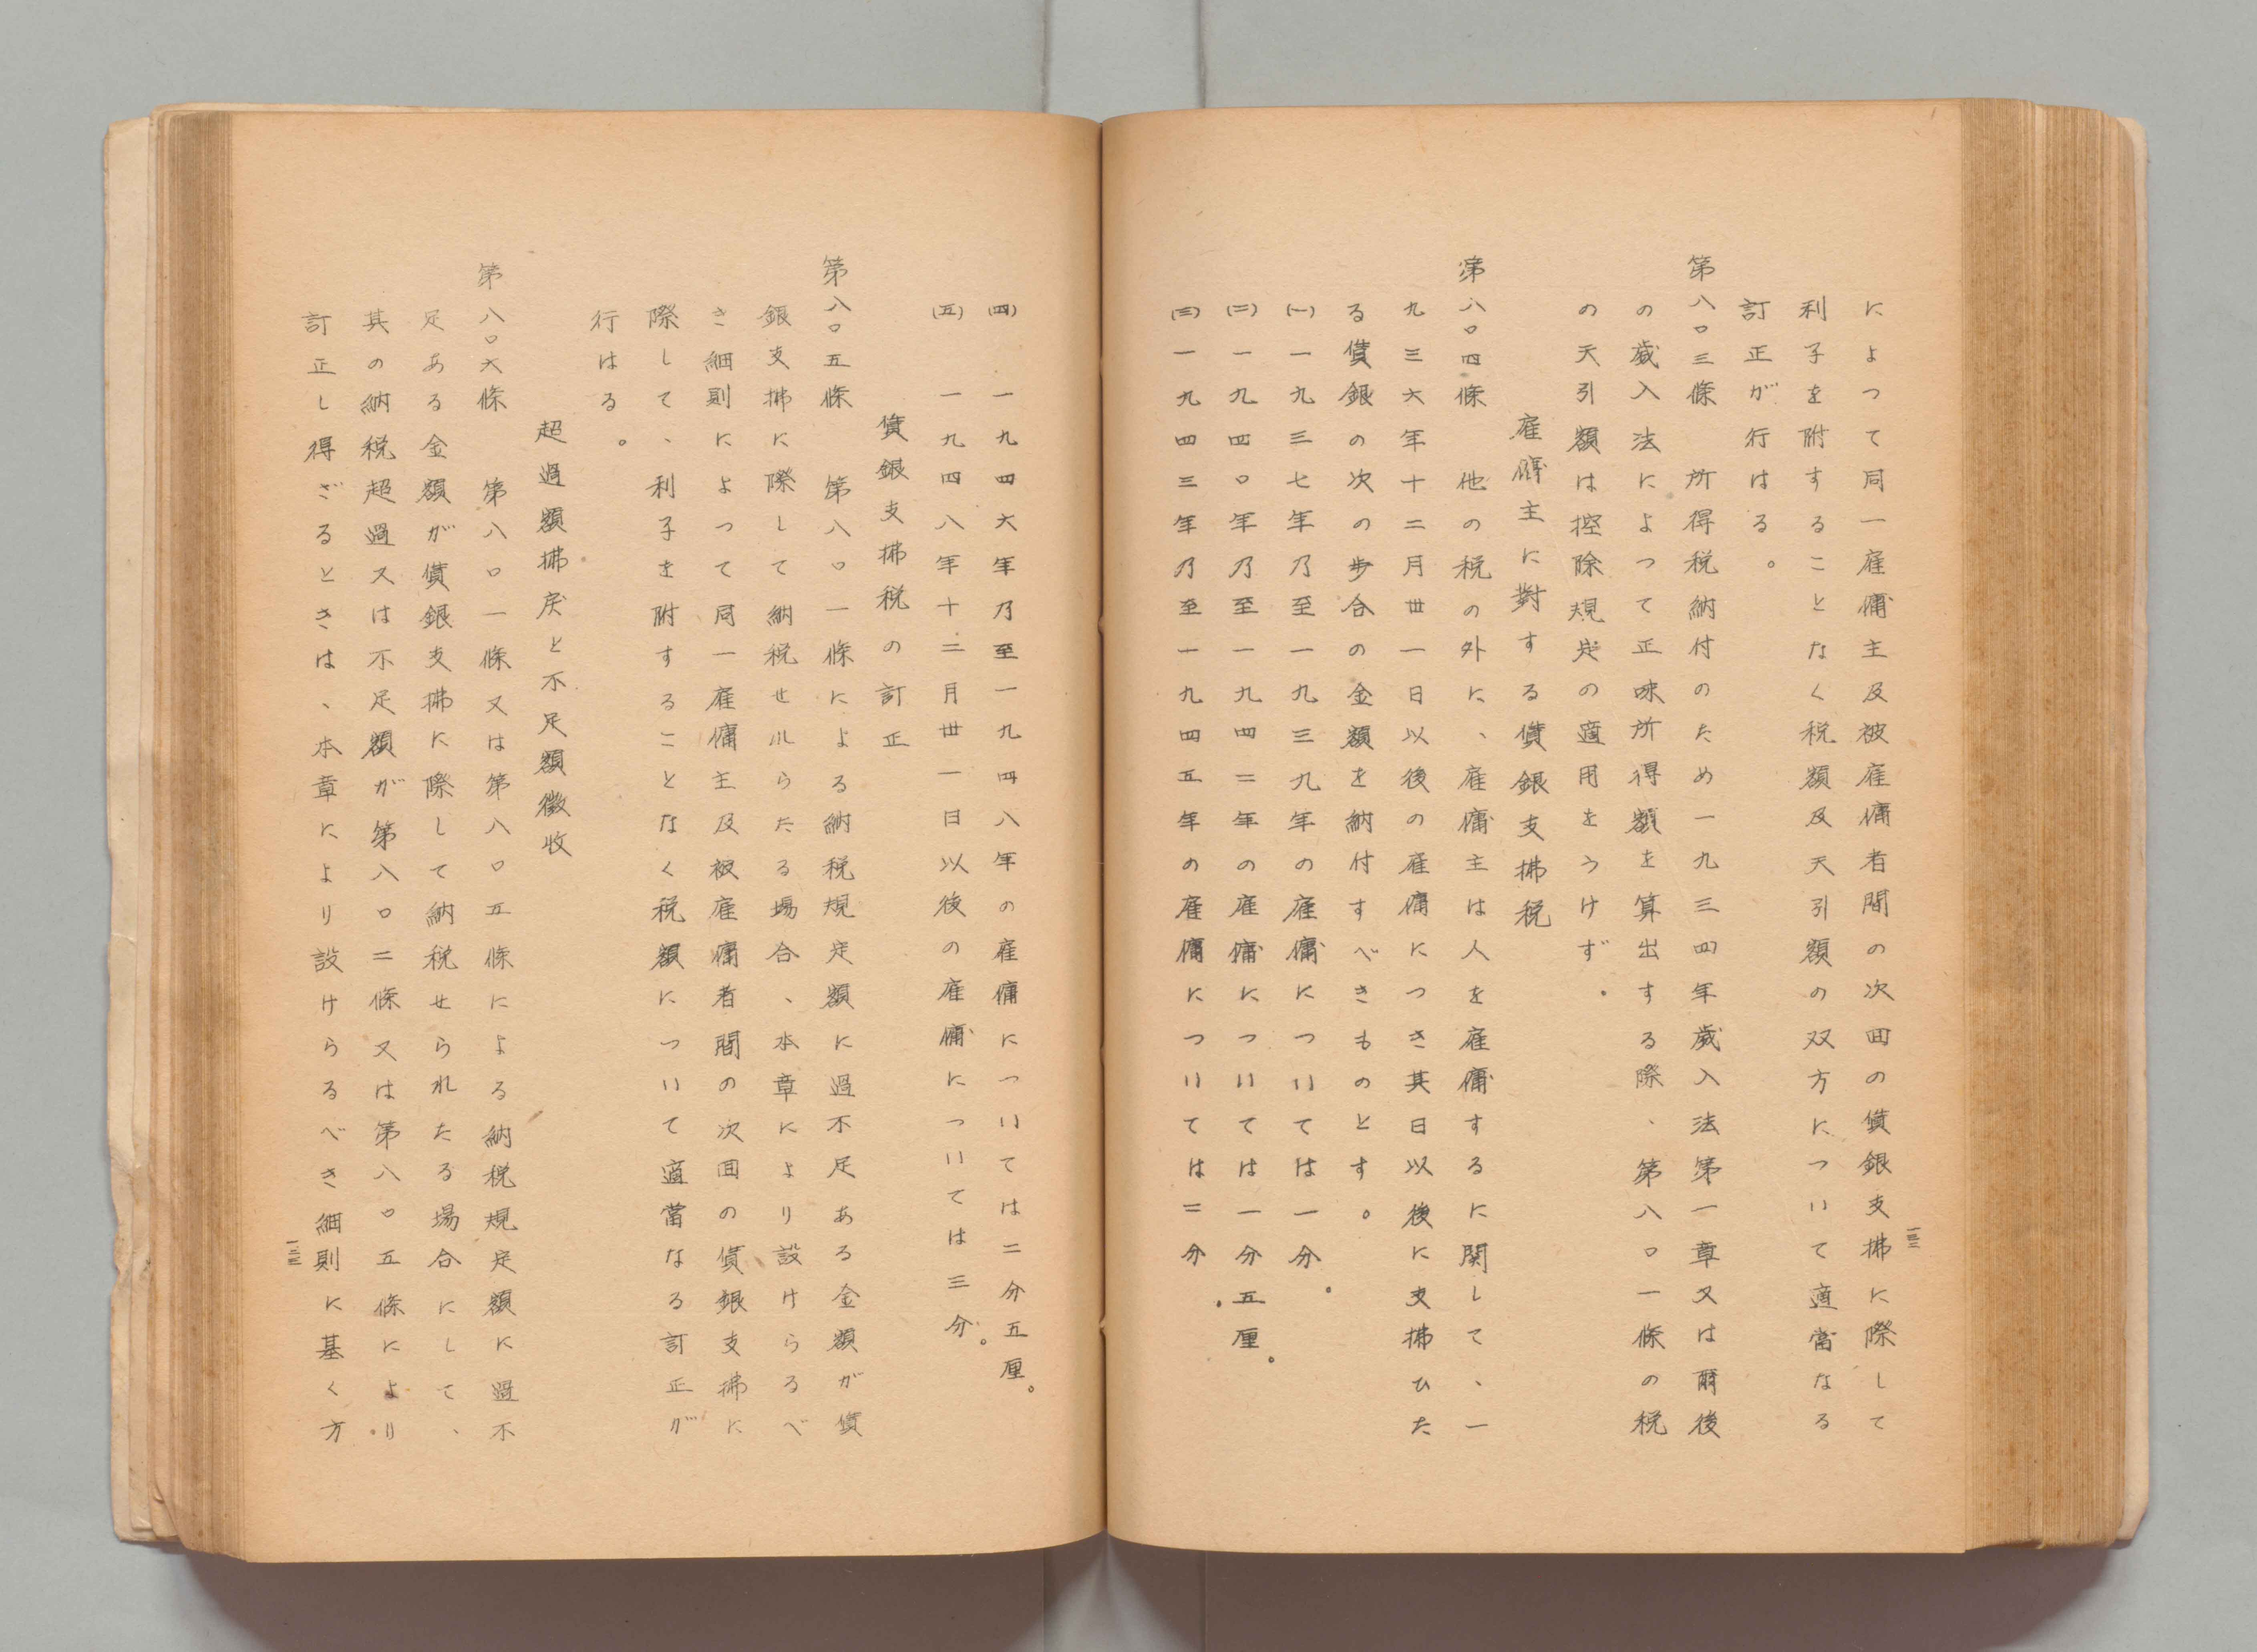 によって同一雇傭主及被雇傭者間の次回の賃銀支拂に際して
利子を附することなく税額及天引額の双方について適當なる
訂正が行はる。
第八〇三條　所得税納付のため一九三四年歳入法第一章又は爾後
の歳入法によって正味所得額を算出する際、第八〇一條の税
の天引額は控除規定の適用をうけず。
雇傭主に對する賃銀支拂税
第八〇四條　他の税の外に、雇傭主は人を雇傭するに関して、一
九三六年十二月卅一日以後の雇傭につき其日以後に支拂ひた
る賃銀の次の歩合の金額を納付すべきものとす。
(一)一九三七年乃至一九三九年の雇傭については一分。
(二)一九四〇年乃至一九四二年の雇傭については一分五厘。
(三)一九四三年乃至一九四五年の雇傭については二分。
一三二
(四)　一九四六年乃至一九四八年の雇傭については二分五厘。
(五)　一九四八年十二月卅一日以後の雇傭については三分。
賃銀支拂税の訂正
第八〇五條　第八〇一條による納税規定額に過不足ある金額が賃
銀支拂に際して納税せルらたる場合、本章により設けらるべ
き細則によって同一雇傭主及被雇傭者間の次回の賃銀支拂に
際して、利子を附することなく税額について適當なる訂正が
行はる。
超過額拂戻と不足額徴收
第八〇六條　第八〇一條又は第八〇五條による納税規定額に過不
足ある金額が賃銀支拂に際して納税せられたる場合にして、
其の納税超過又は不足額が第八〇二條又は第八〇五條により
訂正し得ざるときは、本章により設けらるべき細則に基く方
一三三